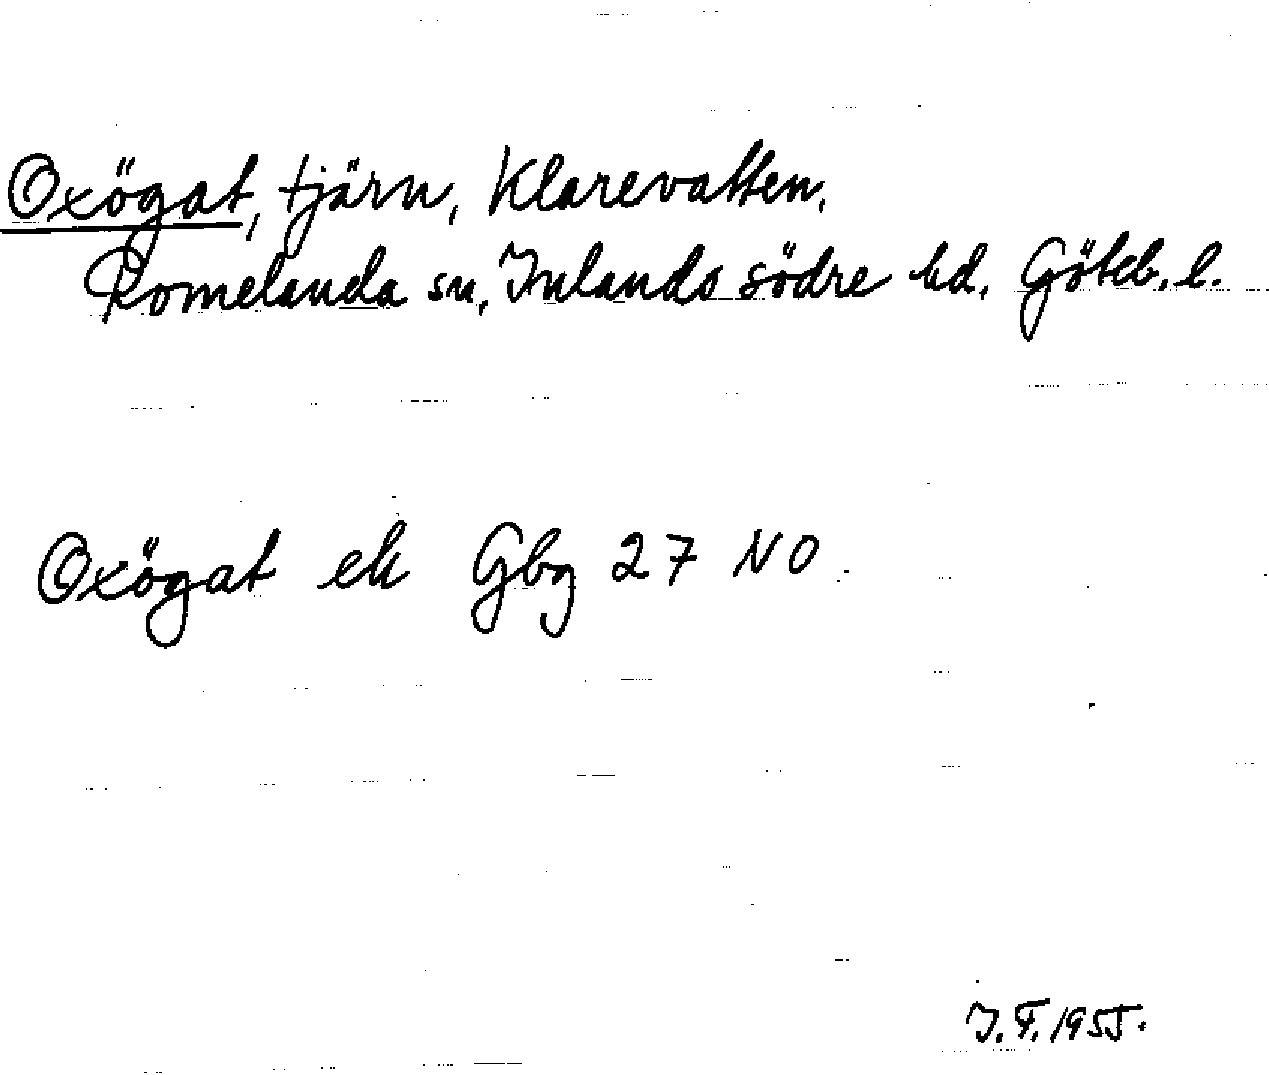 Oxögat, tjärn, Klarevatten,
Romelanda sn, Inlands södre hd, Göteb. l.
Oxögat ek Gbg 27 NO
I. F. 1955.